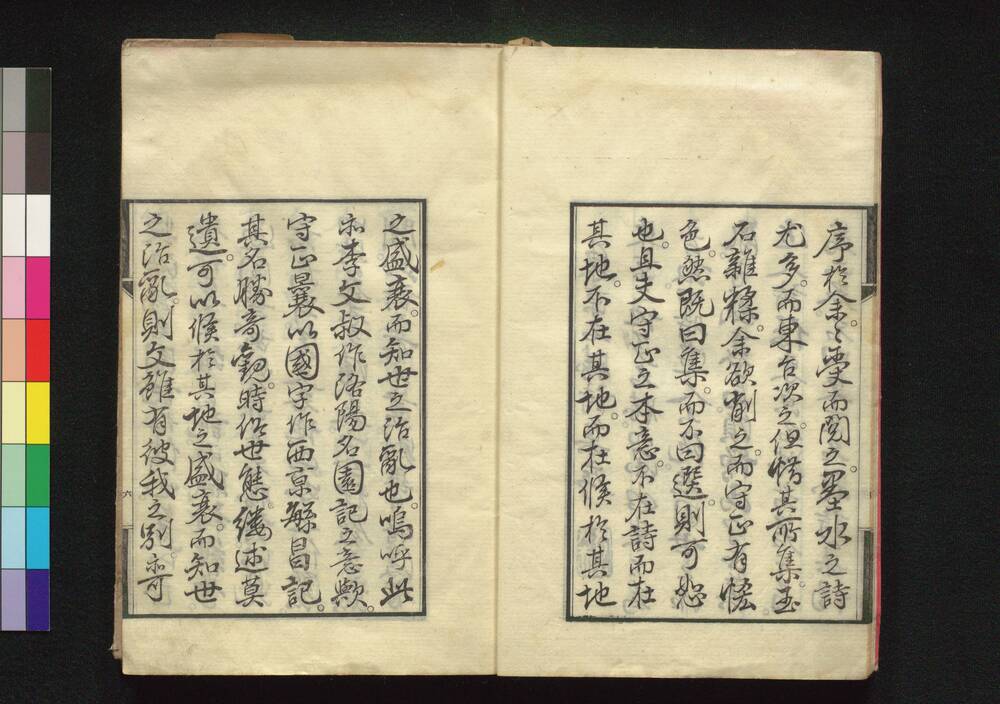 序於余。々受而閲之。墨水之詩
尤多。而東台次之。但惜其所集。玉
石雜糅。余欲削之。而守正有慍
色。然既曰集。而不曰選。則可恕
也。且夫守正之本意。不在詩而在
其地。不在其地。而在候於其地
之盛衰。而知世之治亂也。嗚呼此
亦李文叔作洛陽名園記之意歟。
守正曩以國字作西京繁昌記。
其名勝奇觀。時俗世態。縷述莫
遺。可以候於其地之盛衰。而知世
之治亂。則文雖有彼我之別。亦可
六